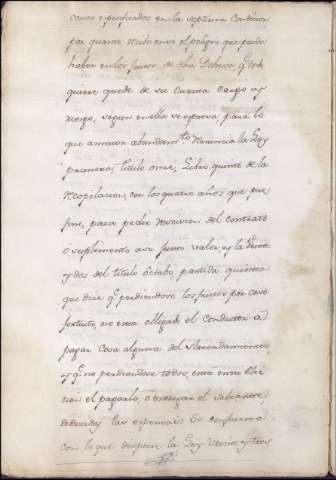 casos espesificados en la septima Condicion
por quanto recibe en si el peligro que pueda
haber en los frutos de dha Dehesa, q.e todo
quiere quede de su cuenta cargo y
riesgo, segun en ella se expresa, para lo
que arriba renuncia la Ley
primera, titulo once, Libro quinto de la
recopilacion, con los quatro años que pre
fine, para pedir rescision del contrato
o suplemento a su justo valor, y la Veinte
y dos del titulo octabo partida quinta
que dice q.e perdiendose los frutos por caso
fortuito, no esta obligado el conductor a
pagar cosa alguna del Arrendamiento,
y q.e no perdiendose todos, está en su Elec
cion el pagarlo, o entregar el sobrante,
deducidas las expensas: Se conforma
con lo que dispone la Ley Veinte y tres